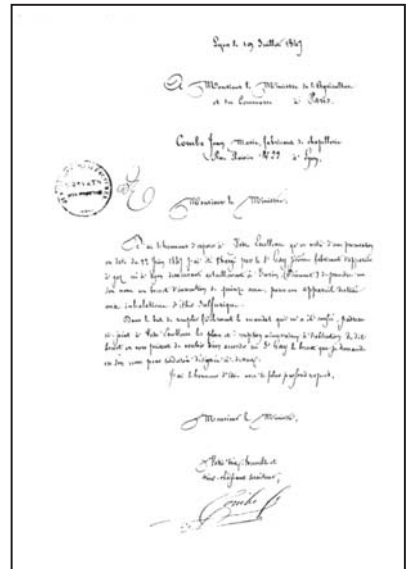 Lyon le 19 Juillet 1847
A Monsieur le Ministre de l'Agriculture
et du Commerce à Paris.
Combe Jean Marie, fabricant de chapellerie
Rue N° 33 à Lyon,
Monsieur le Ministre,
J'ai l'honneur d'exposer à Votre Excellence qu'en vertu d'une procuration
en date du 22 Juin 1847 j'ai été chargé par le Sr Gay fabricant d'appareils
à gaz, né à Lyon actuellement à Turin (Piémont) de prendre en
son nom un brevet d'invention de quinze ans, pour un appareil destiné
aux inhalations d'éther sulfurique.
Dans le but de remplir fidèlement le mandat qui m'a été confié, j'adresse
ci-joint à Votre Excellence les plans et à l'obtention du dit
brevet en vous priant de vouloir bien accorder au Sr Gay le brevet que je demande
en son nom pour
J'ai l'honneur d'être avec le plus profond respect,
Monsieur le Ministre,
Votre très humble et
très obéissant serviteur,
Combe